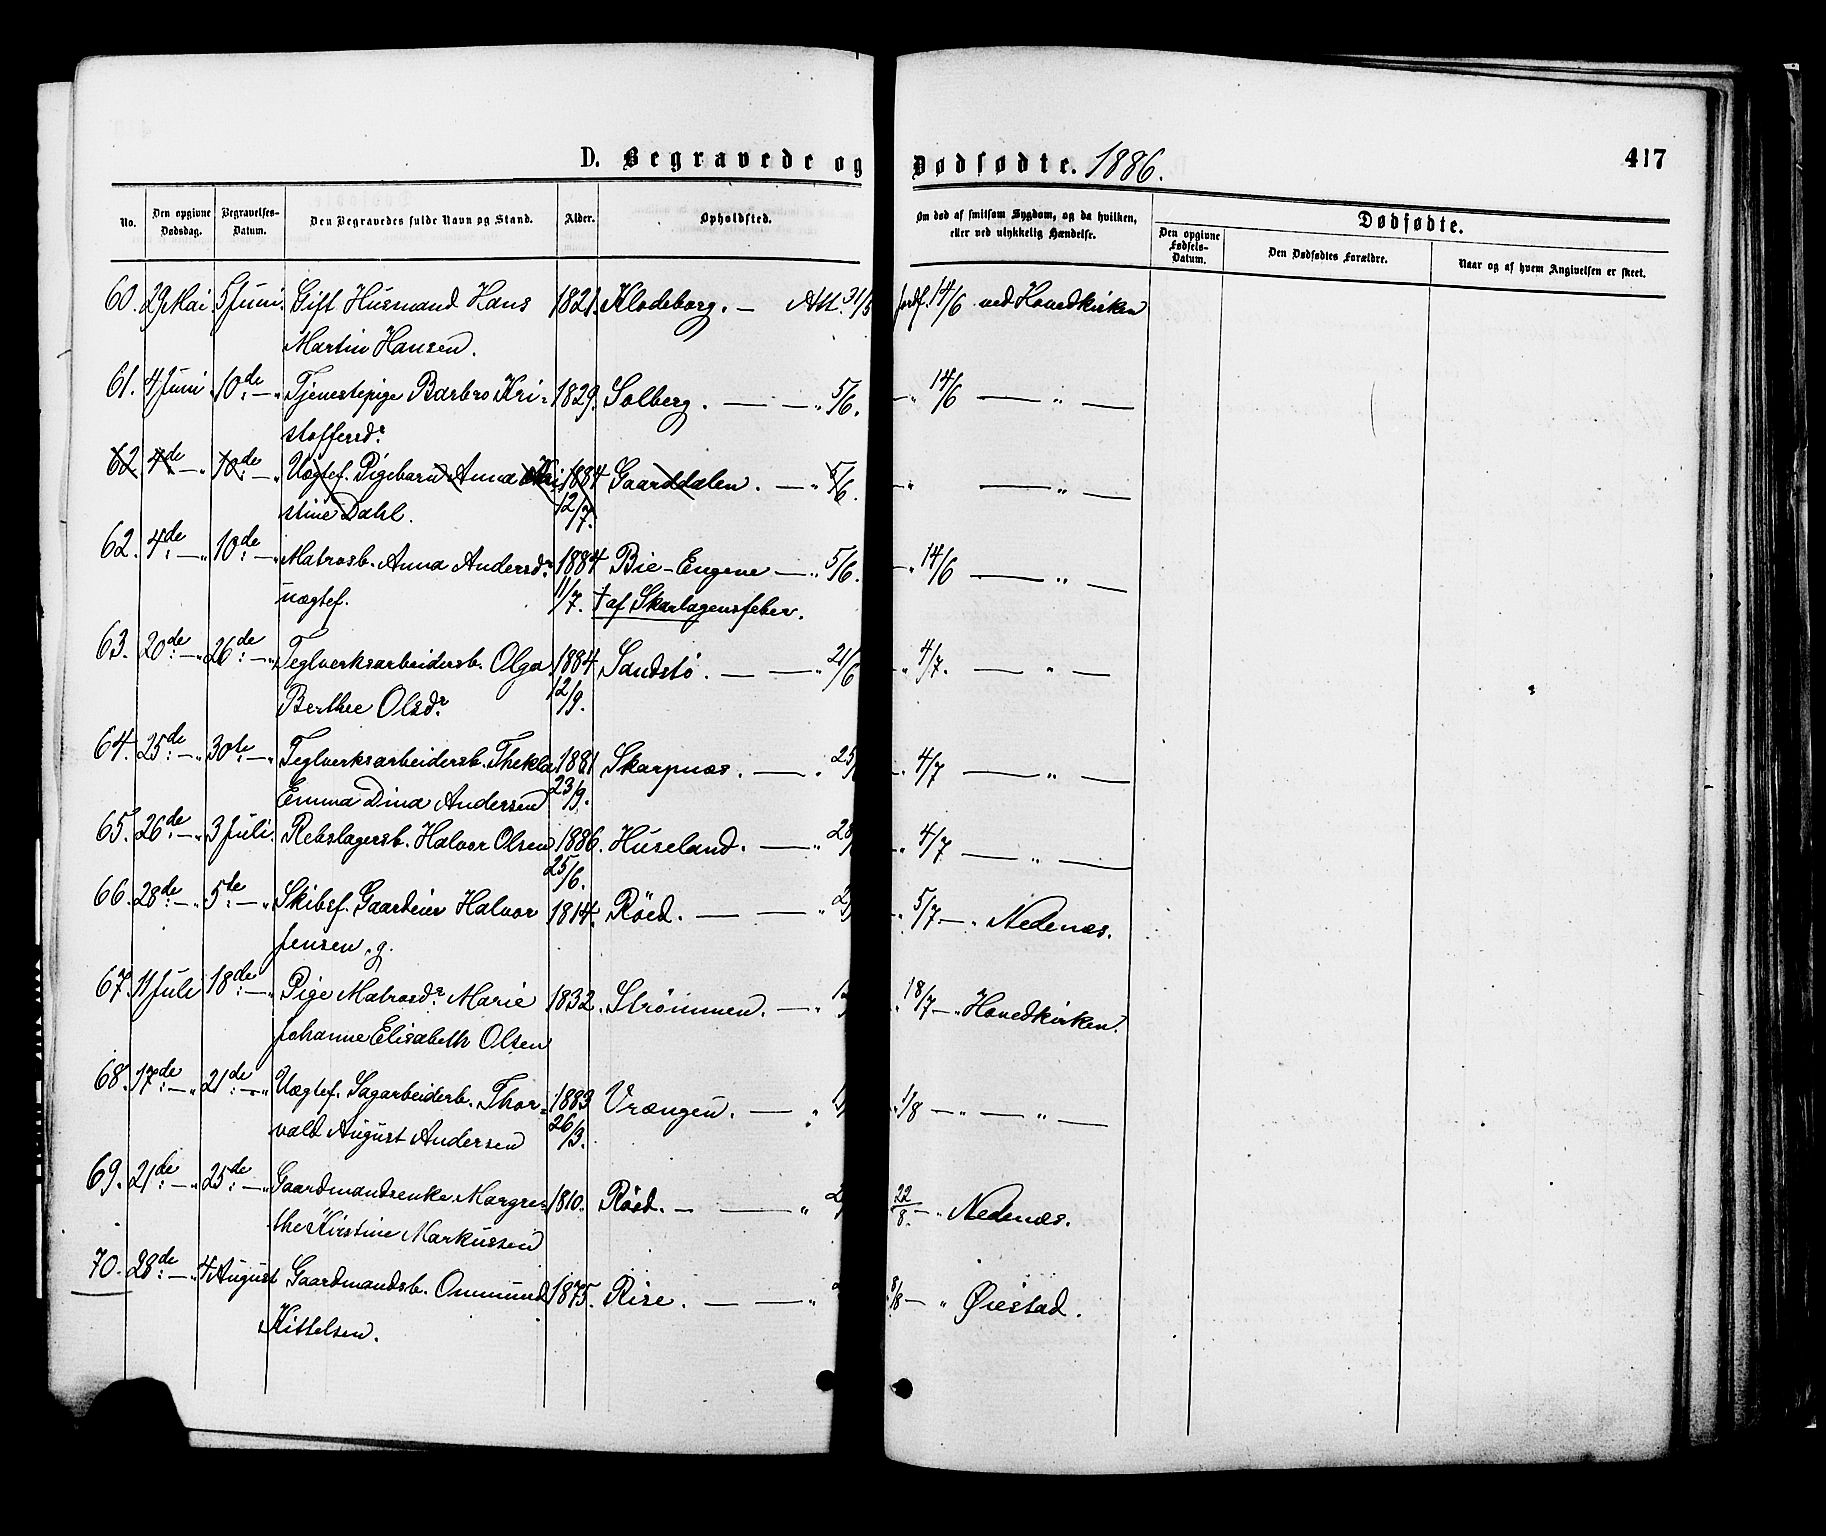 D. Begravede og Dødfødte. 1886. 417
No. Den opgivne Dødsdag. Begravelses-Datum. Den Begravedes fulde Navn og Stand. Alder. Opholdsted. Om død af smitsom Sygdom, og da hvilken, eller ved ulykkelig Hændelse. Dødfødte.
Den opgivne Fødsels-Datum. Den Dødfødtes Forældre. Naar og af hvem Angivelsen er skeet.
60. 29 Mai 5 Juni. Gift Husmand Hans 1821. Klodeborg. — Att. 31/5 jordf. 14/6 ved Hovedkirken
Martin Hansen.
61. 4 Juni 10de — „ Tjenestepige Barbro Kri- 1829. Solberg. — — „ 5/6. — „ 14/6 — „ —
stoffersdr
62 4de — „ 10de — „ Uægtef. Pigebarn Anna Kri- 1884 Gaarddalen. — „ 5/6. — „ — „ —
stine Dahl. 12/7.
62. 4de — „ 10de — „ Matrosb. Anna Andersdr 1884 Bie-Engene — „ 5/6. — „ 14/6 — „ —
uægtef. 11/7. † af Skarlagensfeber.
63. 20de — „ 26de — „ Teglverksarbeidersb. Olga 1884 Sandstø. — — „ 21/6 „ 4/7. — „ —
Berthee Olsdr 12/9.
64. 25de — „ 30te — „ Teglverksarbeidersb. Thekla 1881 Skarpnæs. — „ 25/ — „ 4/7 — „ —
Emma Dina Andersen 23/9.
65. 26de — „ 3 Juli. Rebslagersb. Halvor Olsen 1886. Huseland. — „ 28/ — „ 4/7 — „ —
25/6.
66. 28de — „ 5te — „ Skibsf. Gaardeier Halvor 1814. Röed. — — „ 2 — „ 5/7 — „ Nedenæs.
Jensen. g.
67. 11 Juli 18de — „ Pige Matrosdr Marie 1832. Strömmen. — „ 1 „ 18/7 — „ Hovedkirken.
Johanne Elisabeth Olsen
68. 17de — „ 21de — „ Uægtef. Sagarbeiderb. Thor- 1883 Vrængen. — „ 1 „ 1/8 — „ — „ —
vald August Andersen 26/3.
69. 21de — „ 25de — „ Gaardmandsenke Margre- 1810. Röed. — — „ 2 22/8. — „ Nedenæs.
the Kirstine Markussen
70. 28de — „ 4 August Gaardmandsb. Ommund 1875. Rise. — — „ 8/8 — „ Øiestad.
Kittelsen.